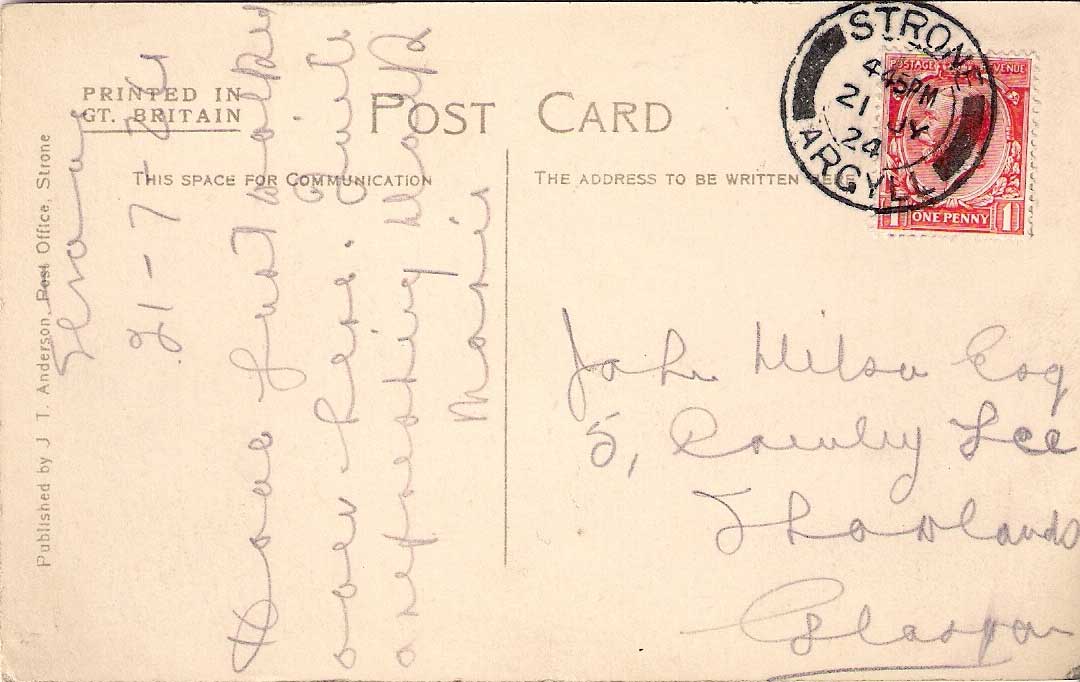 PRINTED IN
GT. BRITAIN
POST CARD
THIS SPACE FOR COMMUNICATION
THE ADDRESS TO BE WRITTEN HERE
Published by J T. Anderson, Post Office, Strone
STRONE
4 45PM
21 JY
24
ARGYLL
POSTAGE REVENUE
1 ONE PENNY 1
Strone
21-7-24
Have just walked
over here. Quite
a refreshing walk
John Wilson Esq
5, Crowley Tce
Shawlands
Glasgow